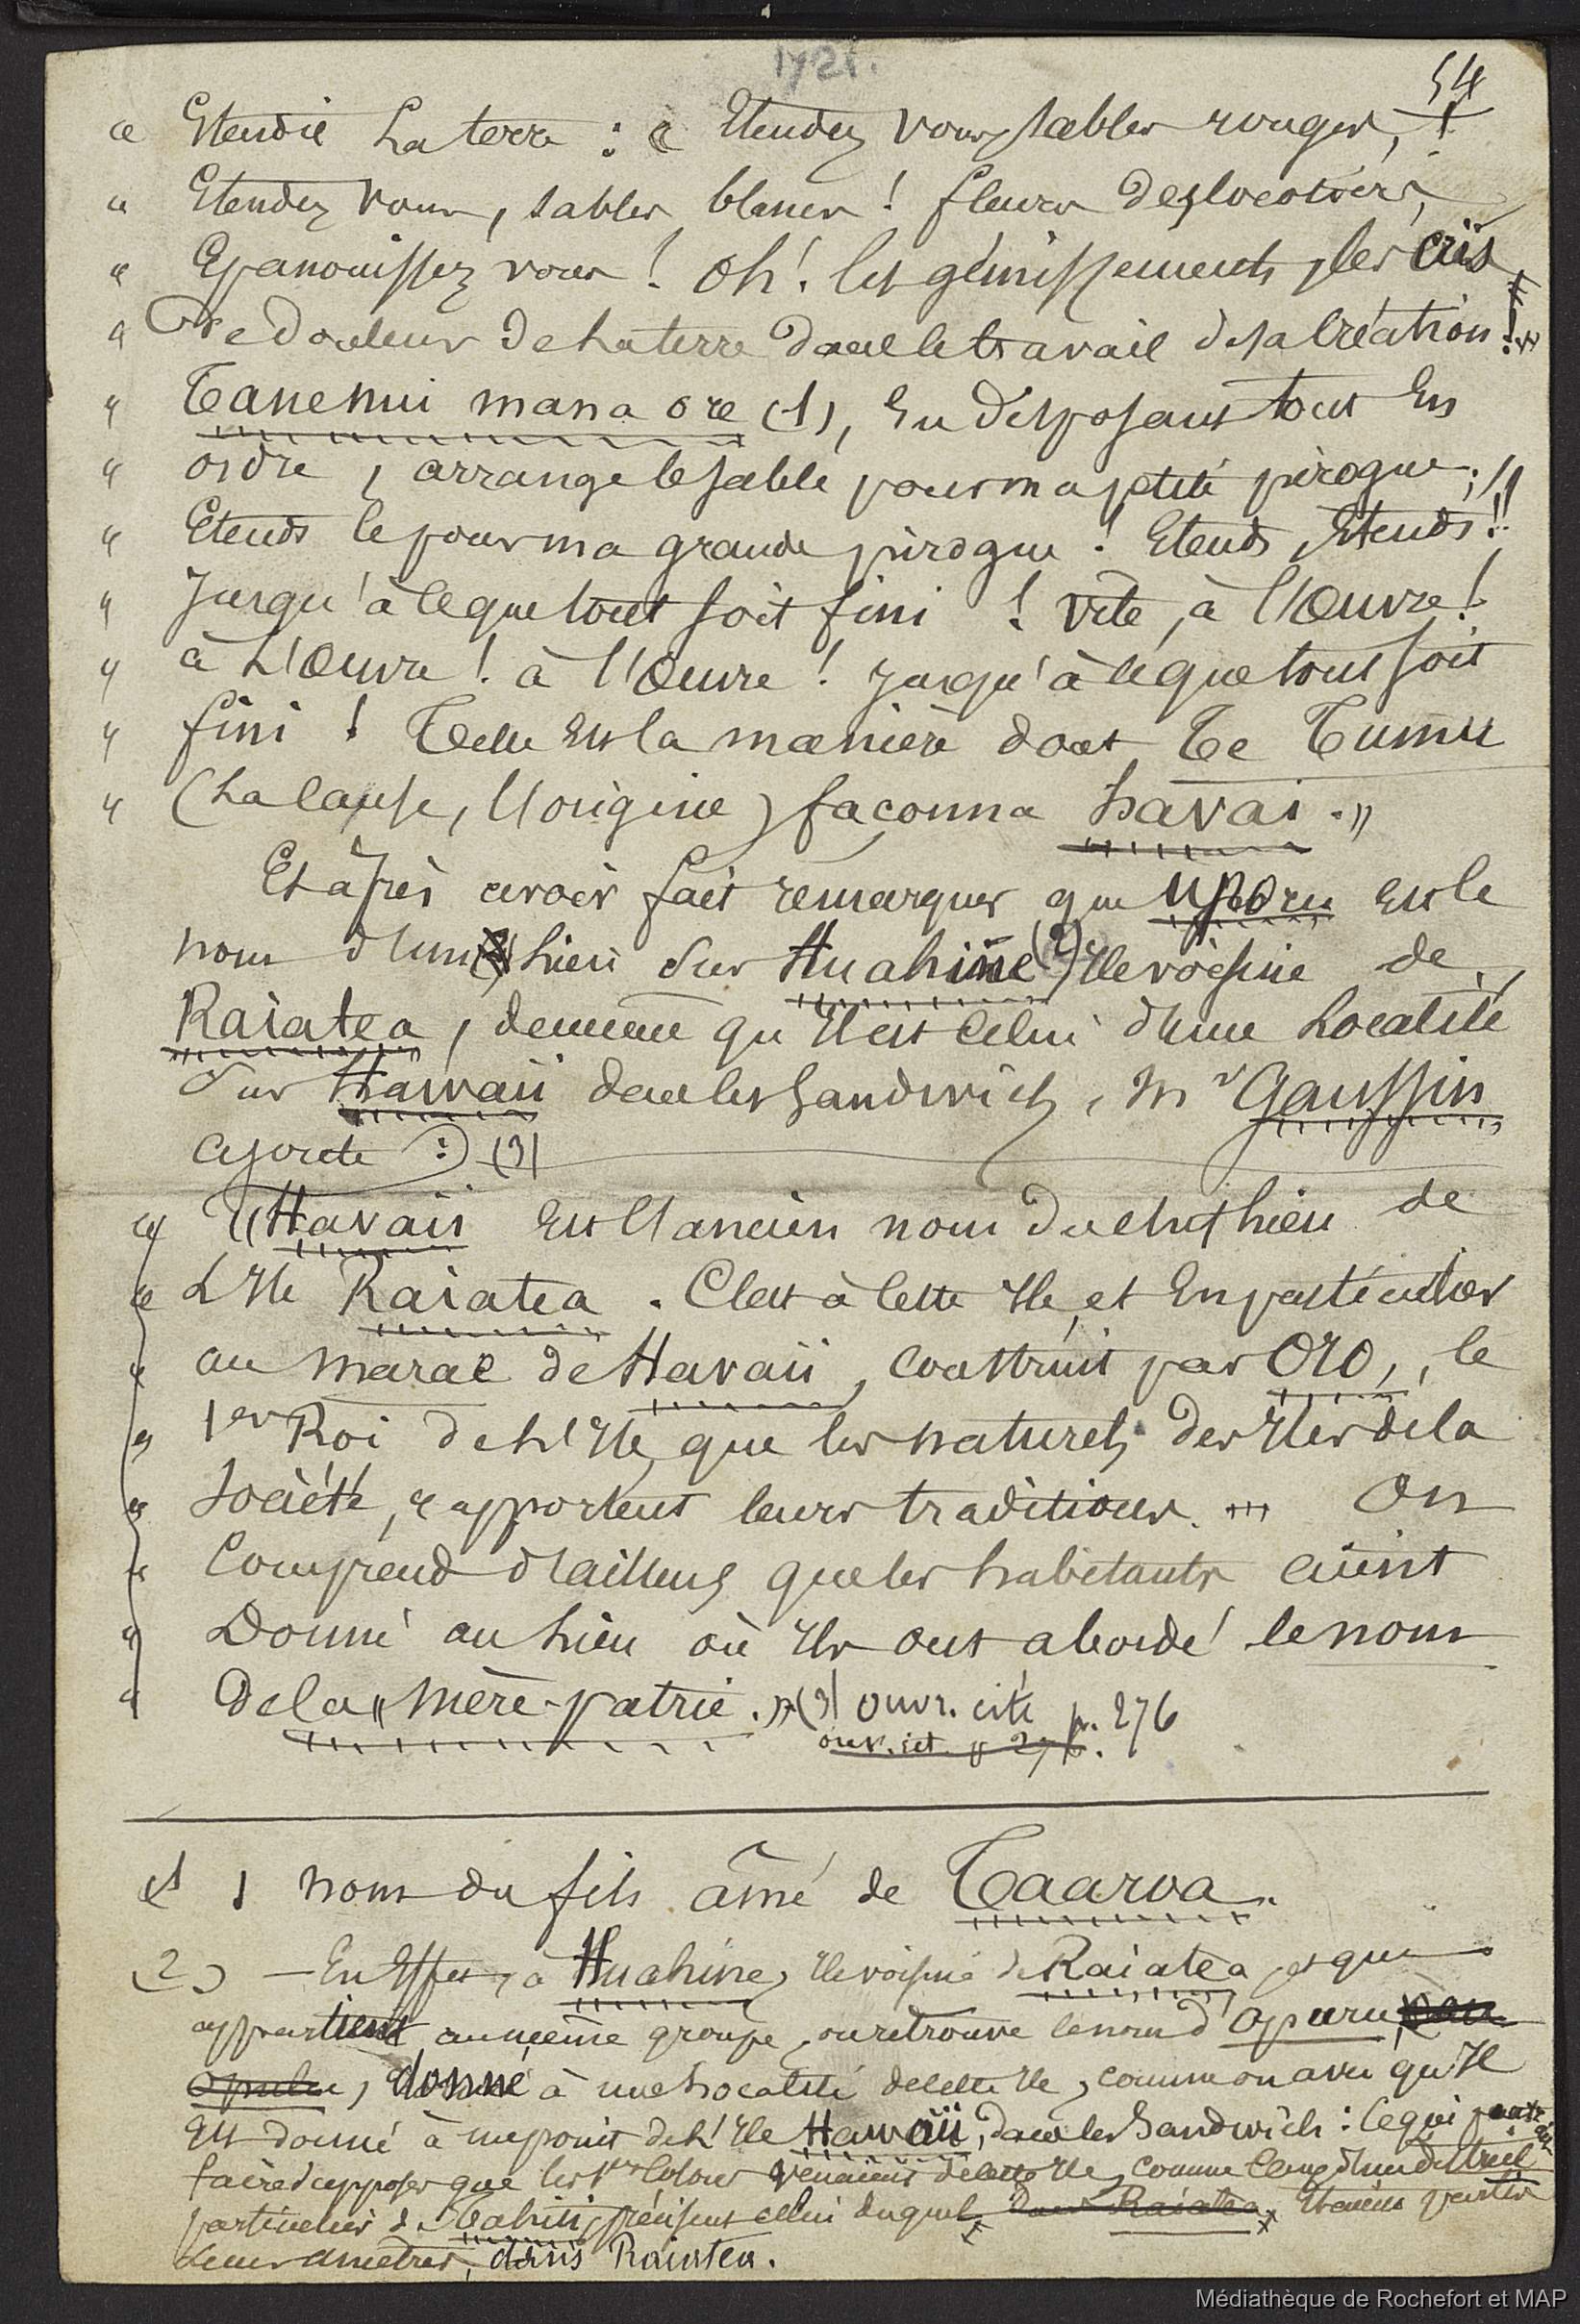 1721.
54
« Etendit La terre : « Etendez vous, sables rouges, !
« Etendez vous, sables blancs ! fleurs des cocotiers,
« Epanouissez vous ! Oh ! les gémissements, les cris
« de douleur de la terre dans le travail de sa Création !
« Tane nui mana ore (1), en disposant tout en
« ordre, arrange le sable pour ma petite pirogue ; !!
« Etends le pour ma grande pirogue ! Etends, Etends !!
« Jusqu'à ce que tout soit fini ! Vite, à l'Œuvre !
« à L'Œuvre ! à l'Œuvre ! jusqu'à ce que tout soit
« fini ! Telle est la manière dont Te Tumu
« (La cause, l'origine) façonna havai. »
Et après avoir fait remarquer que Uporu est le
nom d'un lieu sur Huahine (2) Ile voisine de
Raiatea, de même qu'il est celui d'une Localité
Sur Hawaii dans les Sandwich, Mr Gaussin
ajoute : (3)
« « Havaii est l'ancien nom du chef lieu de
« L'Ile Raiatea. C'est à cette Ile, et en particulier
« au marae de Havaii, construit par Oro, le
« 1er Roi de L'Ile, que les naturels des Iles de la
« Société, rapportent leurs traditions. ... On
« Comprend d'ailleurs que les habitants aient
« Donné au lieu où Ils ont abordé le nom
« De la « mère-patrie. » (3) ouvr. cité p. 276
ouv. cit. p 276.
(1 1 nom du fils aîné de Taaroa.
(2) — En Effet, à Huahine, Ile voisine de Raiatea, et qui
appartient au même groupe, on retrouve le nom d'Opuru,
Opulu, donné à une Localité de cette Ile, comme on a vu qu'Il
Est donné à un point de L'Ile Hawaii, dans les Sandwich : Ce qui peut
faire supposer que les 1ers Colons venaient de cette Ile, comme d'un district
particulier de Tahiti, précisent celui duquel dans Raiatea, étaient partis
Leurs ancêtres, dans Raiatea.
Médiathèque de Rochefort et MAP